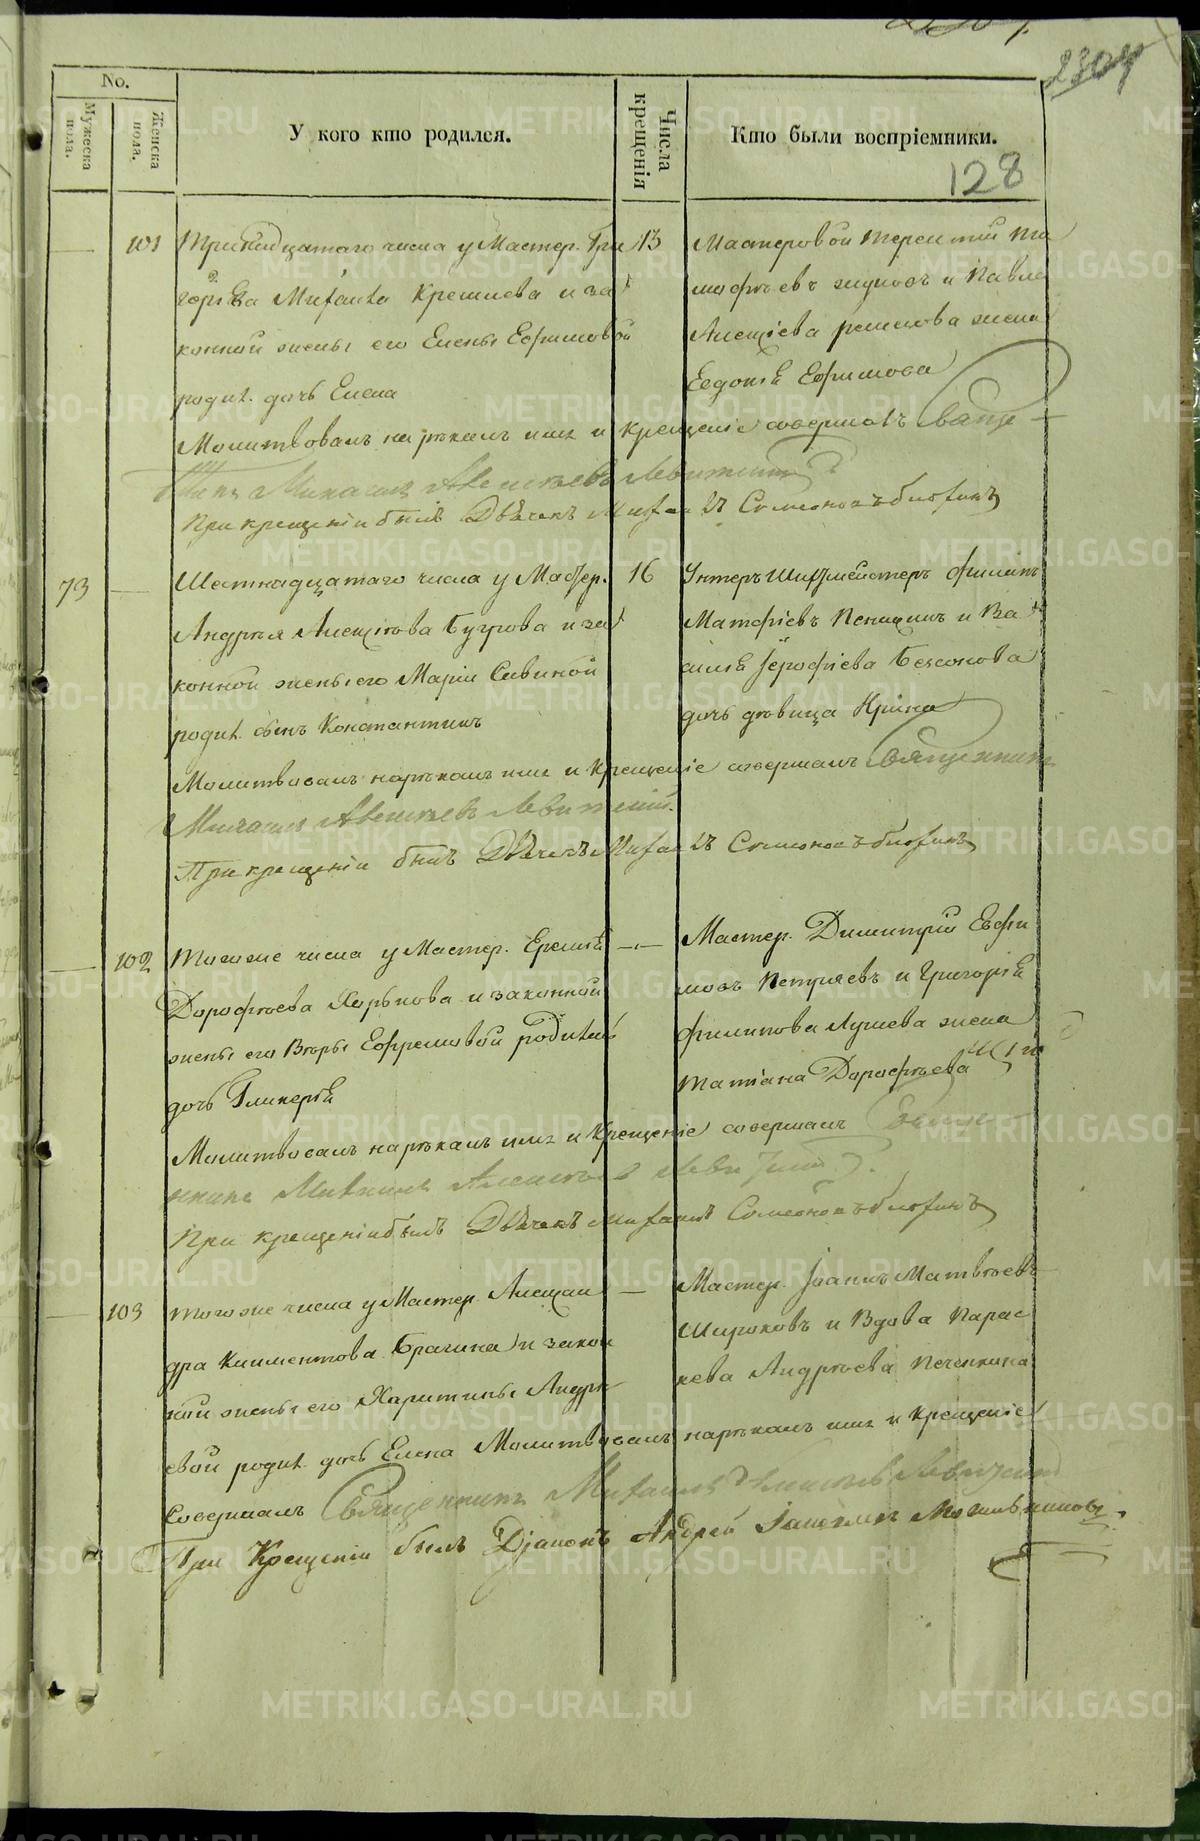 2304
128
No.
Мужеска пола.
Женска пола.
У кого кто родился.
Числа крещенія
Кто были воспріемники.
101 Тринадцатаго числа у Мастер. Гри
горья Михаила Крешнева и за
конной жены его Елены Ефимовой
родил. дочь Елена
13
Мастеровой Терентий Ти
мофѣевъ и Павла
Алексіева жена
Евдокія Ефимова
Молитвовалъ нарѣкалъ имя и крещеніе совершалъ Свяще
нникъ Михаилъ Алексѣевъ Левитскій
При крещеніи былъ Дьячекъ Михаилъ Симеоновъ
73
Шестнадцатаго числа у Мастер.
Андрея Алексіева Бугрова и за
конной жены его Маріи Савиной
родил. сынъ Константинъ
16
Унтеръ Шихтмейстеръ Филипъ
Матфіевъ и Ва
силія Іерофіева Безсонова
дочь дѣвица Ирина
Молитвовалъ нарѣкалъ имя и Крещеніе совершалъ Священникъ
Михаилъ Алексѣевъ Левитскій.
При крещеніи былъ Дьячекъ Михаилъ Симеоновъ
102 Тогоже числа у Мастер. Еремѣя
Дорофѣева Хорькова и законной
жены его Вѣры Ефремовой родилась
дочь Гликерія
Мастер. Димитрій Евфи
мовъ Петряевъ и Григорія
Филипова жена
Татіана Дорофѣева
Молитвовалъ нарѣкалъ имя и Крещеніе совершалъ Свяще
нникъ Михаилъ Алексѣевъ Левитскій.
При крещеніи былъ Дьячекъ Михаилъ Симеоновъ
103 Тогоже числа у Мастер. Алексан
дра Климентова Брагина и закон
ной жены его Харитины Андрѣ
евой родил. дочь Елена
Мастер. Іоаннъ Матвѣевъ
Широковъ и Вдова Парас
кева Андрѣева Печенкина
Молитвовалъ нарѣкалъ имя и Крещеніе
Совершалъ Священникъ Михаилъ Алексѣевъ Левитскій
При Крещеніи былъ Діаконъ Андрей
METRIKI.GASO-URAL.RU